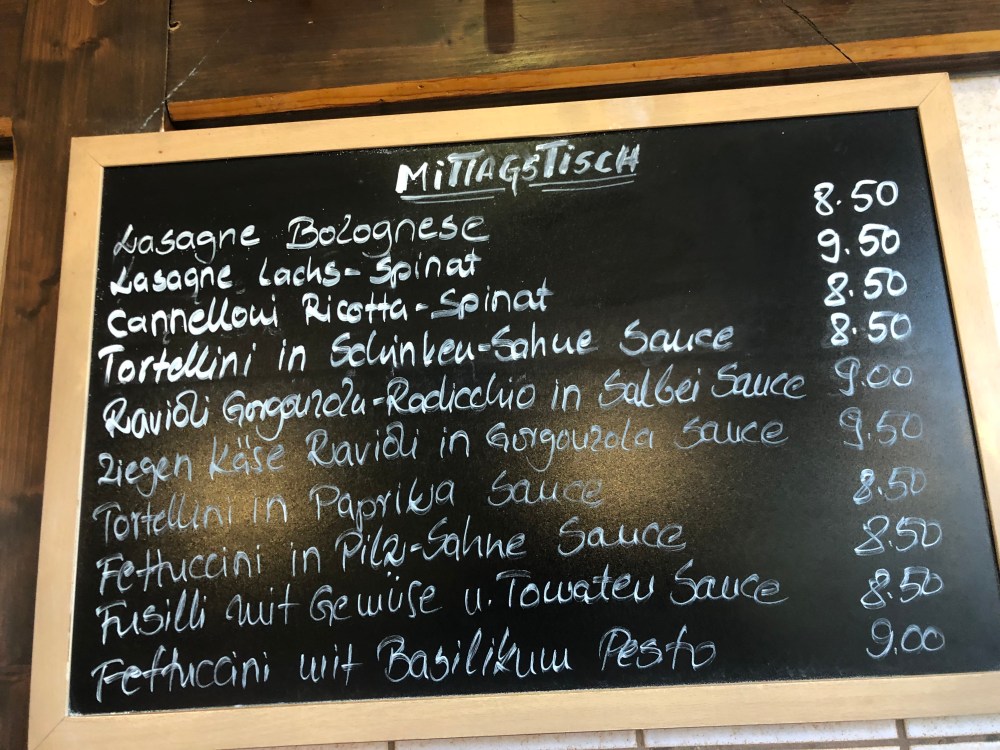 MITTAGSTISCH
Lasagne Bolognese 8.50
Lasagne Lachs-Spinat 9.50
Cannelloni Ricotta-Spinat 8.50
Tortellini in Schinken-Sahne Sauce 8.50
Ravioli Gorgonzola-Radicchio in Salbei Sauce 9.00
Ziegen Käse Ravioli in Gorgonzola Sauce 9.50
Tortellini in Paprika Sauce 8.50
Fettuccini in Pilz-Sahne Sauce 8.50
Fusilli mit Gemüse u. Tomaten Sauce 8.50
Fettuccini mit Basilikum Pesto 9.00